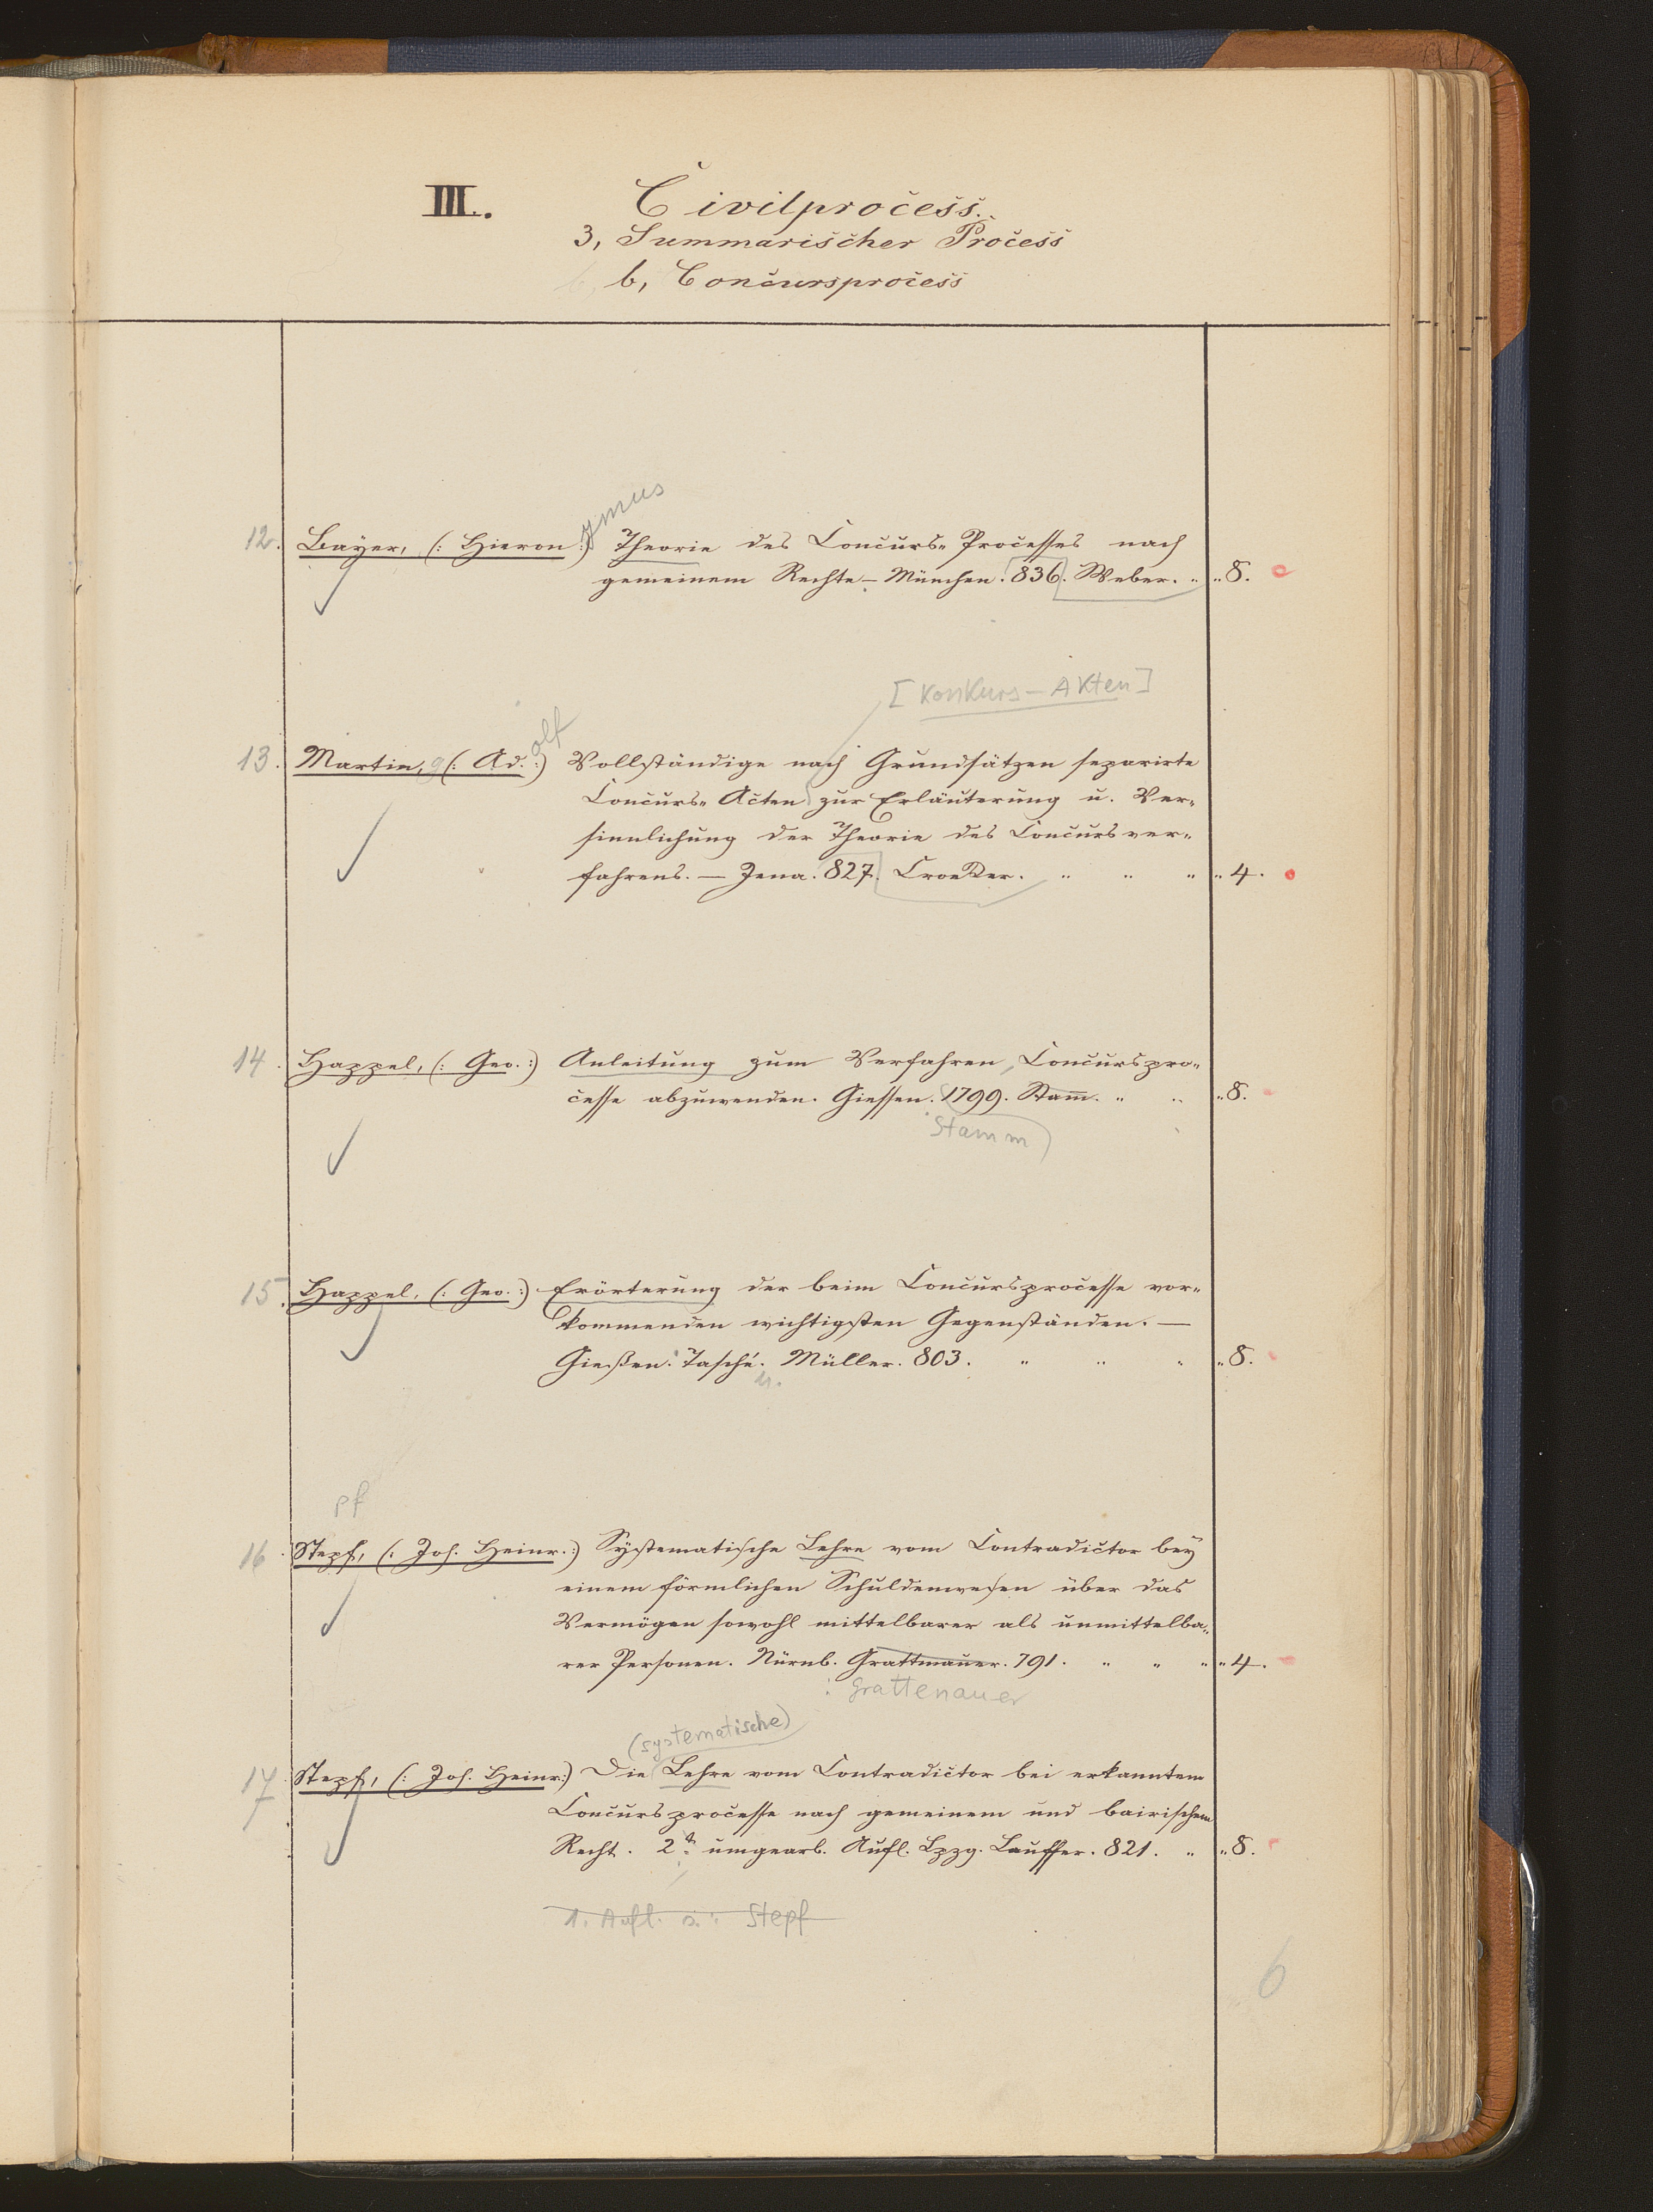 III. Civilprocess.
3, Summarischer Process
b, Concursprocess
ymus
12. Bayer, (: Hieron :) Theorie des Concurs= Processes nach
gemeinem Rechte – München. 836. Weber. „ „ 8.
[Konkurs – Akten]
olf
13. Martin, (: Ad. :) Vollständige nach Grundsätzen separirte
Concurs= Acten zur Erläuterung u. Ver=
sinnlichung der Theorie des Concursver=
fahrens. — Jena. 827. Croeker. „ „ „ „ 4.
14. Happel, (: Geo. :) Anleitung zum Verfahren, Concurspro=
cesse abzuwenden. Giessen. 1799. Stam̅. „ „ „ 8.
Stamm
15. Happel, (: Geo. :) Erörterung der beim Concursprocesse vor=
kommenden wichtigsten Gegenständen. —
Gießen. Tasché. Müller. 803. „ „ „ „ 8.
u.
pf
16. Stepf, (: Joh. Heinr. :) Systematische Lehre vom Contradictor bey
einem förmlichen Schuldenwesen über das
Vermögen sowohl mittelbarer als unmittelba=
rer Personen. Nürnb. Grattmauer. 791. „ „ „ „ 4.
: Grattenauer
(systematische)
17. Stepf, (: Joh. Heinr :) Die Lehre vom Contradictor bei erkanntem
Concursprocesse nach gemeinem und bairischem
Recht. 2t. umgearb. Aufl. Lpzg. Lauffer. 821. „ „ 8.
1. Aufl. s.: Stepf
6